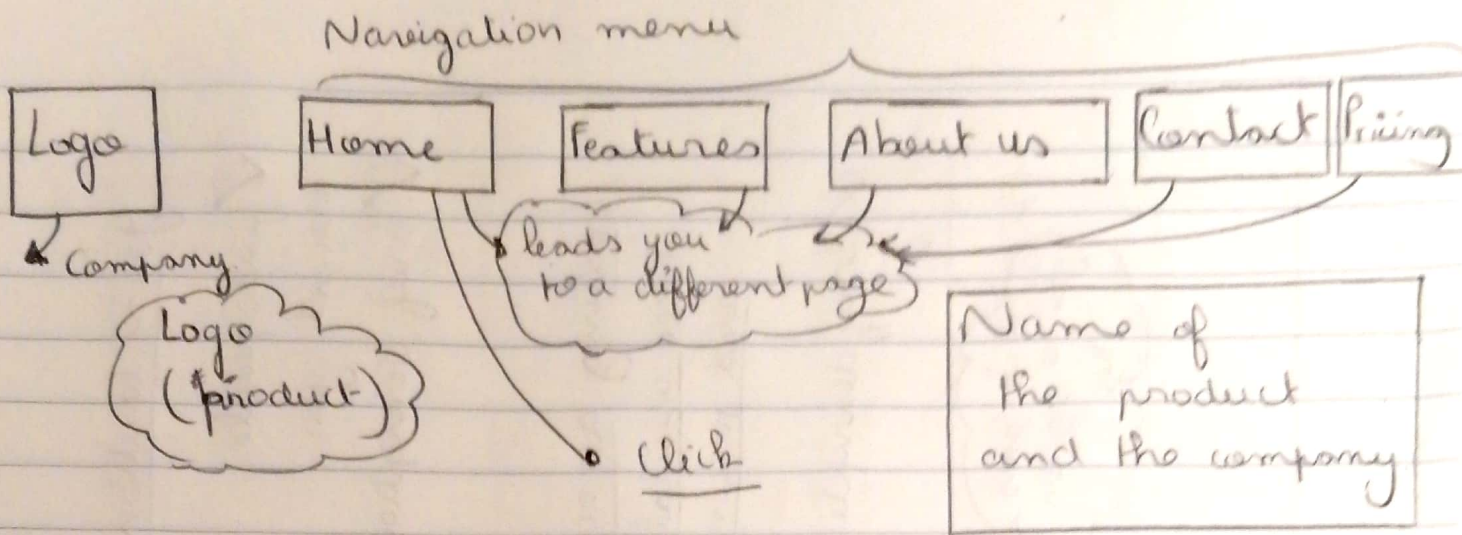 Navigation menu
Logo Home Features About us Contact Pricing
Company
leads you
to a different page
Logo
(product)
Click
Name of
the product
and the company